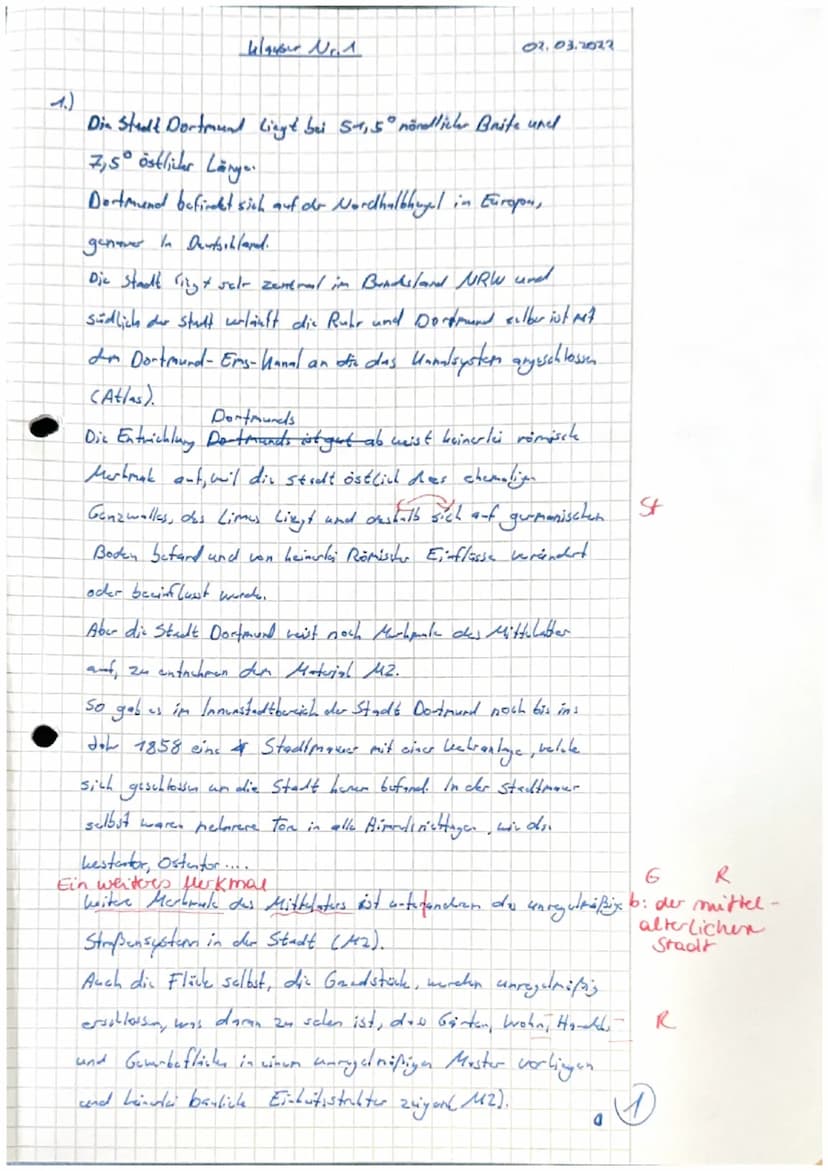 Klausur Nr. 1
02.03.2022
1.)
Die Stadt Dortmund liegt bei 51,5° nördlicher Breite und
7,5° östlicher Länge.
Dortmund befindet sich auf der Nordhalbkugel in Europa,
genauer in Deutschland.
Die Stadt liegt sehr zentral im Bundesland NRW und
südlich der Stadt verläuft die Ruhr und Dortmund selber ist mit
dem Dortmund-Ems-Kanal an das Kanalsystem angeschlossen
(Atlas).
Dortmunds
Die Entwicklung Dortmunds ist gut ab weist keinerlei römische
Merkmale auf, weil die Stadt östlich des ehemaligen
Grenzwalles, des Limes liegt und deshalb sich auf germanischen
St
Boden befand und von keinerlei Römische Einflüsse verändert
oder beeinflusst wurde.
Aber die Stadt Dortmund weist noch Merkmale des Mittelalter
auf, zu entnehmen dem Material M2.
So gab es im Innenstadtbereich der Stadt Dortmund noch bis ins
Jahr 1858 eine Stadtmauer mit einer Wehranlage, welche
sich geschlossen um die Stadt herum befand. In der Stadtmauer
selbst waren mehrere Tore in alle Himmelsrichtungen, wie das
Westentor, Ostentor....
Ein weiteres Merkmal
G R
Weitere Merkmale des Mittelalters ist unter anderem das unregelmäßige
b: der mittel-
alterlichen
Stadt
Straßensystem in der Stadt (M2).
Auch die Fläche selbst, die Grundstücke, wurden unregelmäßig
erschlossen, was daran zu sehen ist, dass Gärten, Wohn-, Handels-
R
und Gewerbeflächen in einem unregelmäßigen Muster vorliegen
und keinerlei bauliche Einheitsstruktur zeigen (M2).
1